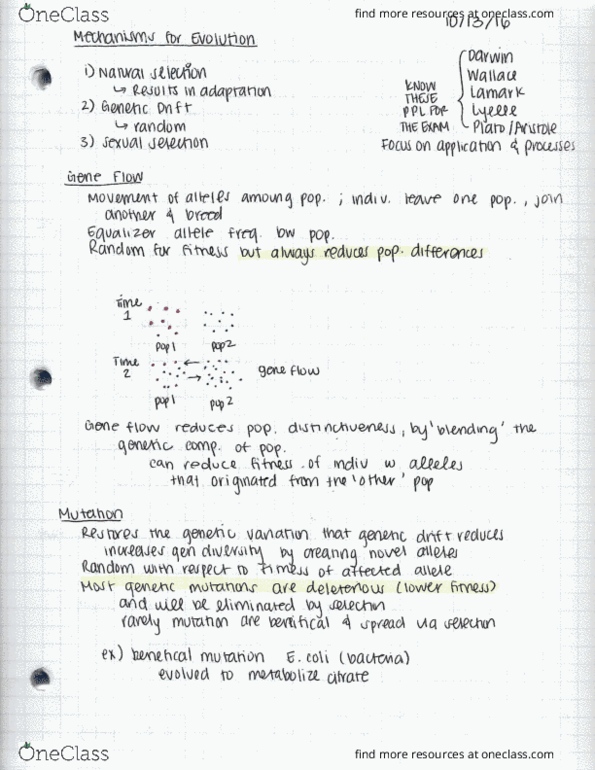 OneClass
find more resources at oneclass.com
10/13/16
Mechanisms for Evolution
1) Natural selection
↳ Results in adaptation
2) Genetic Drift
↳ random
3) Sexual selection
KNOW
THESE
PPL FOR
THE EXAM
Darwin
Wallace
Lamark
Lyelle
Plato/Aristole
Focus on application & processes
Gene Flow
Movement of alleles amoung pop. ; indiv. leave one pop., join
another & breed
Equalizer allele freq. bw pop.
Random for fitness but always reduces pop. differences
Time
1
pop1
pop2
Time
2
gene flow
pop1
pop2
Gene flow reduces pop. distinctiveness, by 'blending' the
genetic comp. of pop.
can reduce fitness of indiv w alleles
that originated from the 'other' pop
Mutation
Restores the genetic variation that genetic drift reduces
increases gen diversity by creating novel alleles
Random with respect to fitness of affected allele
Most genetic mutations are deleterious (lower fitness)
and will be eliminated by selection
rarely mutation are benifical & spread via selection
ex) benefical mutation E. coli (bacteria)
evolved to metabolize citrate
OneClass
find more resources at oneclass.com